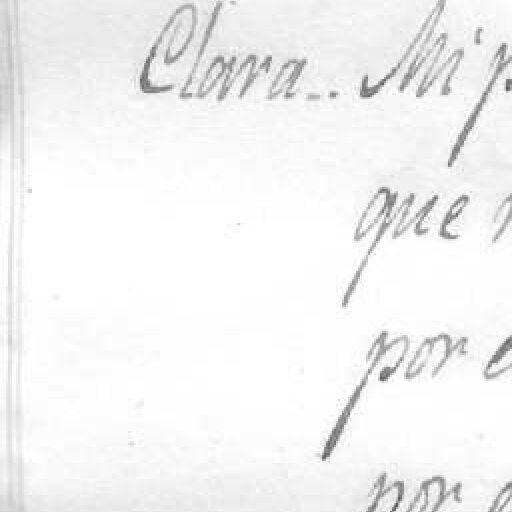 Clara.. Mi p
que
por e
por